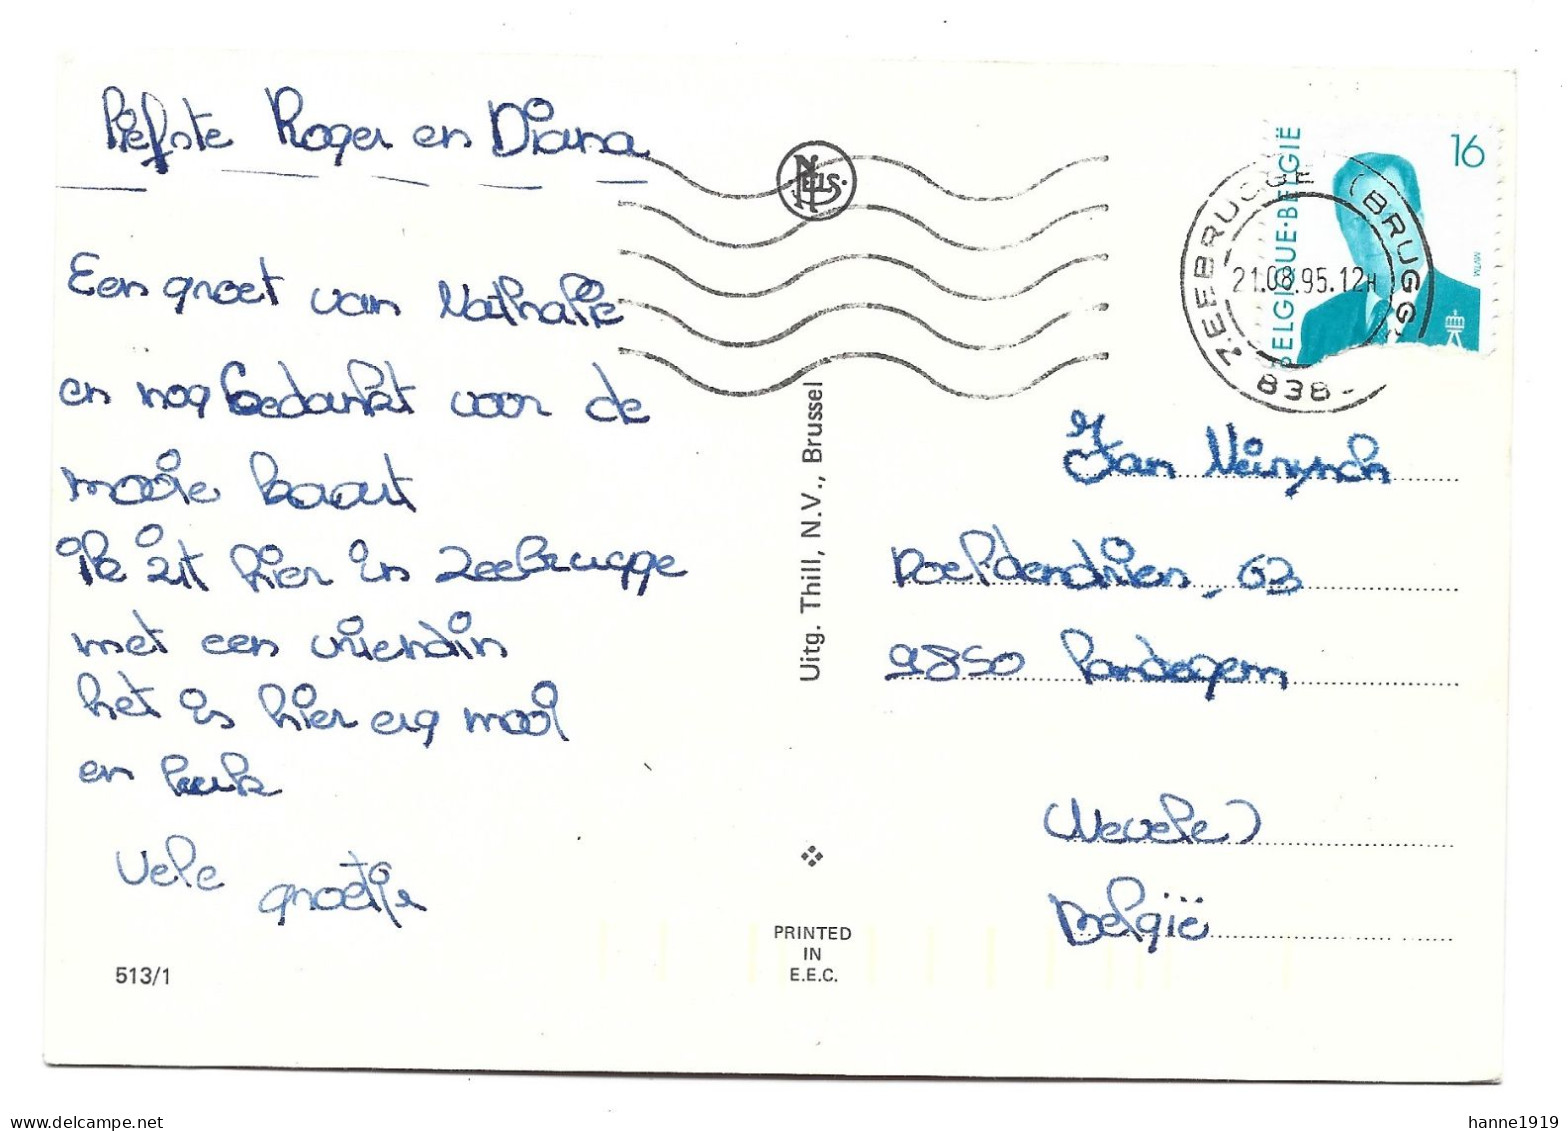 liefste Roger en Diana
Een groet van Nathalie
en nog bedankt voor de
mooie kaart
ik zit hier in Zeebrugge
met een vriendin
het is hier erg mooi
en leuk
Vele groetje
513/1
NELS.
Uitg. Thill, N.V., Brussel
PRINTED
IN
E.E.C.
BELGIQUE·BELGIË
16
MVTM
ZEEBRUGGE (BRUGG
21.08.95.12H
838-
Jan Neirynck
Roeldendries, 63
9850 Landegem
(Nevele)
België
delcampe.net
hanne1919